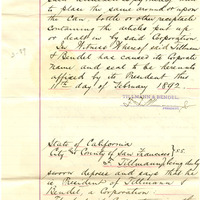 to place the same around or upon
the Can, bottle or other receptacle
containing the articles put up
or dealt in by said Corporation
In Witness Whereof said Tillmann
& Bendel has caused its Corporate
name and seal to be hereunto
affixed by its President this
11th day of February 1892.
TILLMANN & BENDEL
State of California
City & County of San Francisco } ss
F. Tillmann being duly
sworn deposes and says that he
is President of Tillmann &
Bendel, a Corporation